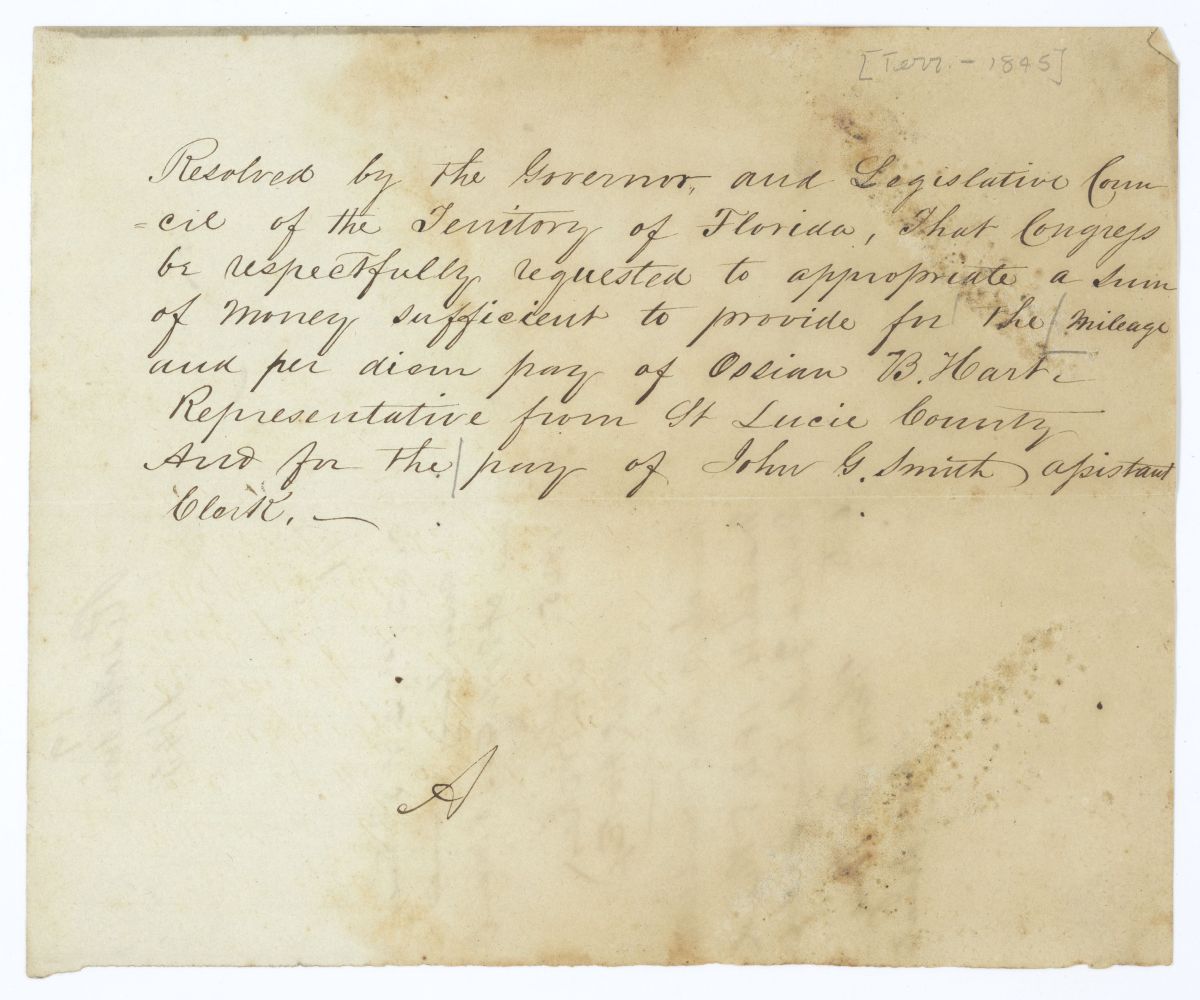 [Terr. - 1845]
Resolved by the Governor, and Legislative Coun
=cil of the Territory of Florida, That Congress
be respectfully requested to appropriate a sum
of Money sufficient to provide for the mileage
and per diem pay of Ossian B. Hart
Representative from St Lucie County
And for the pay of John G. Smith assistant
Clerk. —
A